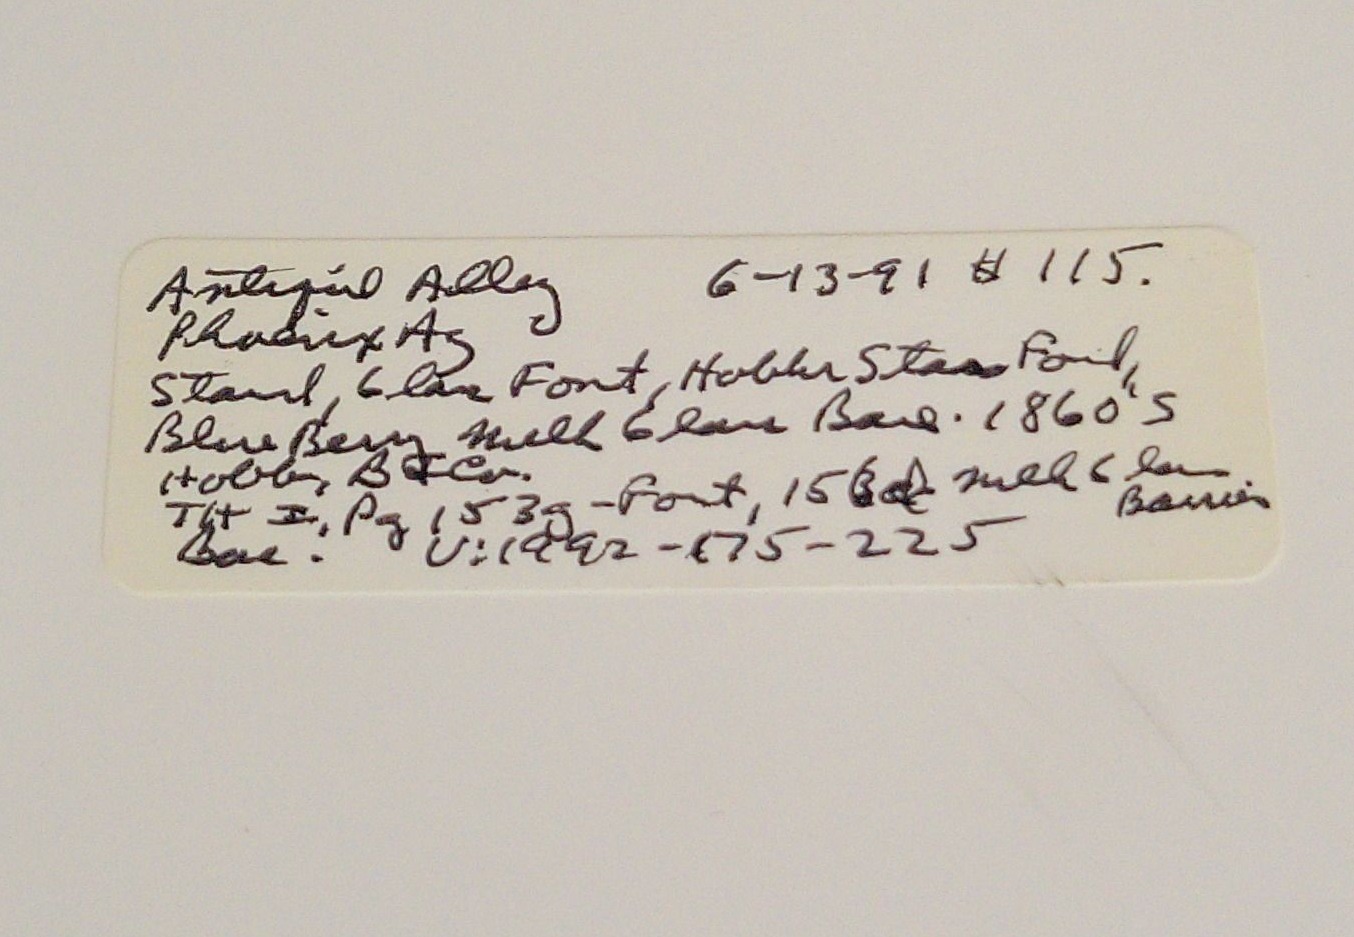 Antique Alley 6-13-91 # 115.
Phoenix Az
Stand, Glass Font, Hobbs Stars Font,
Blue Berry milk Glass Base. 1860's
Hobbs, B & Co.
TH I, Pg 153g - Font, 156d milk Glass
Berries
Base. V: 1992 - 175 - 225